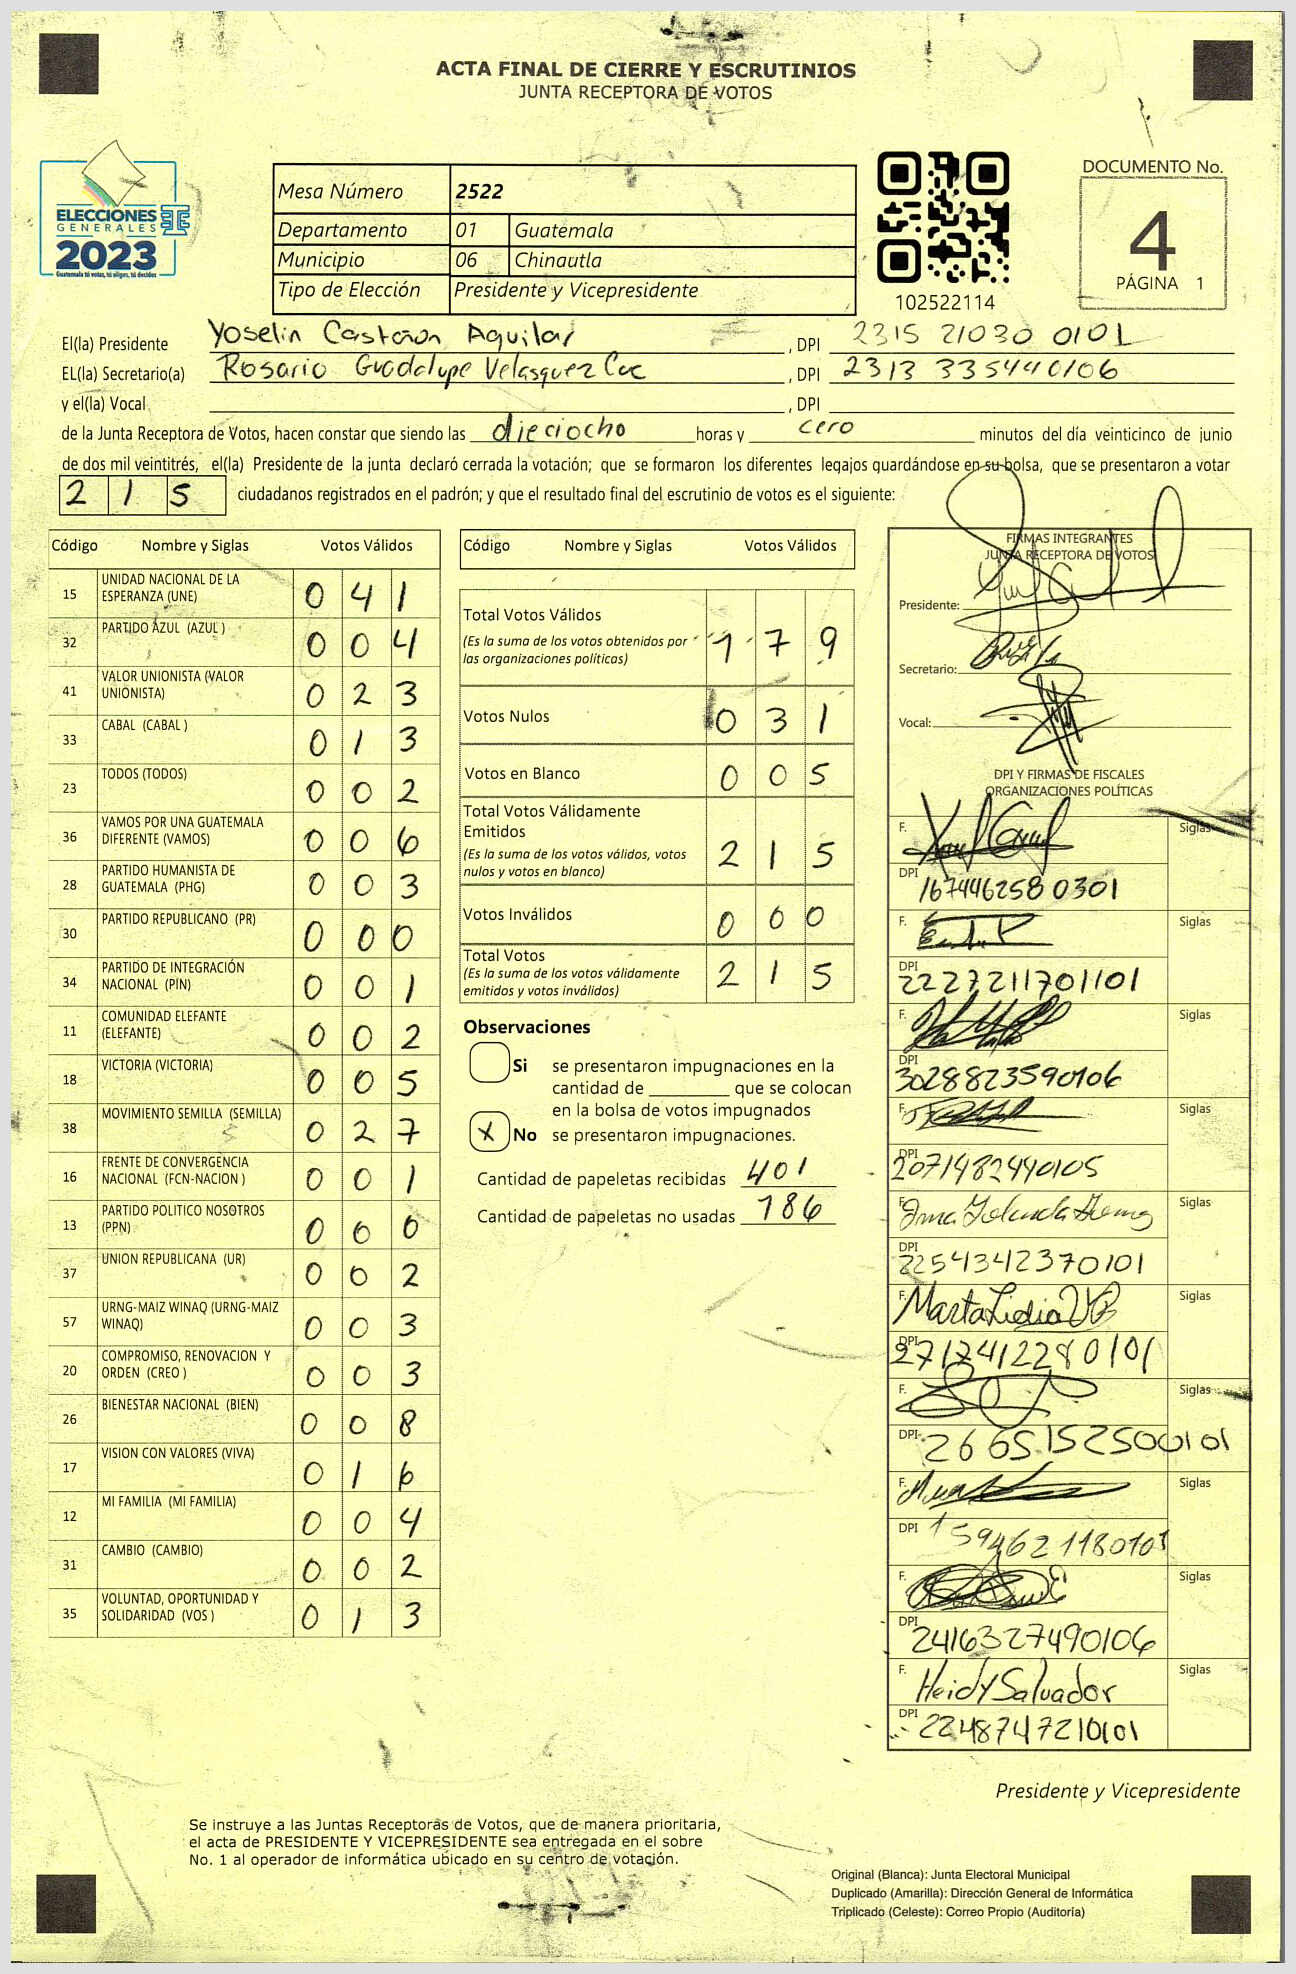 ACTA FINAL DE CIERRE Y ESCRUTINIOS
JUNTA RECEPTORA DE VOTOS
ELECCIONES
GENERALES
2023
Guatemala tú votas, tú eliges, tú decides
Mesa Número 2522
Departamento 01 Guatemala
Municipio 06 Chinautla
Tipo de Elección Presidente y Vicepresidente
102522114
DOCUMENTO No.
4
PÁGINA 1
El(la) Presidente Yoselin Castañon Aguilar , DPI 2315 21030 0101
EL(la) Secretario(a) Rosario Guadalupe Velasquez Cuc , DPI 2313 335440106
y el(la) Vocal , DPI
de la Junta Receptora de Votos, hacen constar que siendo las dieciocho horas y cero minutos del día veinticinco de junio
de dos mil veintitrés, el(la) Presidente de la junta declaró cerrada la votación; que se formaron los diferentes legajos guardándose en su bolsa, que se presentaron a votar
215 ciudadanos registrados en el padrón; y que el resultado final del escrutinio de votos es el siguiente:
Código Nombre y Siglas Votos Válidos
15 UNIDAD NACIONAL DE LA ESPERANZA (UNE) 041
32 PARTIDO AZUL (AZUL ) 004
41 VALOR UNIONISTA (VALOR UNIONISTA) 023
33 CABAL (CABAL ) 013
23 TODOS (TODOS) 002
36 VAMOS POR UNA GUATEMALA DIFERENTE (VAMOS) 006
28 PARTIDO HUMANISTA DE GUATEMALA (PHG) 003
30 PARTIDO REPUBLICANO (PR) 000
34 PARTIDO DE INTEGRACIÓN NACIONAL (PIN) 001
11 COMUNIDAD ELEFANTE (ELEFANTE) 002
18 VICTORIA (VICTORIA) 005
38 MOVIMIENTO SEMILLA (SEMILLA) 027
16 FRENTE DE CONVERGENCIA NACIONAL (FCN-NACION ) 001
13 PARTIDO POLITICO NOSOTROS (PPN) 000
37 UNION REPUBLICANA (UR) 002
57 URNG-MAIZ WINAQ (URNG-MAIZ WINAQ) 003
20 COMPROMISO, RENOVACION Y ORDEN (CREO ) 003
26 BIENESTAR NACIONAL (BIEN) 008
17 VISION CON VALORES (VIVA) 016
12 MI FAMILIA (MI FAMILIA) 004
31 CAMBIO (CAMBIO) 002
35 VOLUNTAD, OPORTUNIDAD Y SOLIDARIDAD (VOS ) 013
Código Nombre y Siglas Votos Válidos
Total Votos Válidos 179
(Es la suma de los votos obtenidos por
las organizaciones políticas)
Votos Nulos 031
Votos en Blanco 005
Total Votos Válidamente
Emitidos 215
(Es la suma de los votos válidos, votos
nulos y votos en blanco)
Votos Inválidos 000
Total Votos 215
(Es la suma de los votos válidamente
emitidos y votos inválidos)
Observaciones
Si se presentaron impugnaciones en la
cantidad de ________ que se colocan
en la bolsa de votos impugnados
X No se presentaron impugnaciones.
Cantidad de papeletas recibidas 401
Cantidad de papeletas no usadas 186
FIRMAS INTEGRANTES
JUNTA RECEPTORA DE VOTOS
Presidente:
Secretario:
Vocal:
DPI Y FIRMAS DE FISCALES
ORGANIZACIONES POLÍTICAS
F. Siglas
DPI 167446258 0301
F. Siglas
DPI 2227211701101
F. Siglas
DPI 3028823590106
F. Siglas
DPI 2071482440105
F. Irma Yolanda Siglas
DPI 2254342370101
F. Marta Lidia Siglas
DPI 2717412280101
F. Siglas
DPI 2665152500101
F. Siglas
DPI 1594621180101
F. Siglas
DPI 2416327490106
F. Heidy Salvador Siglas
DPI 2248747210101
Presidente y Vicepresidente
Se instruye a las Juntas Receptoras de Votos, que de manera prioritaria,
el acta de PRESIDENTE Y VICEPRESIDENTE sea entregada en el sobre
No. 1 al operador de informática ubicado en su centro de votación.
Original (Blanca): Junta Electoral Municipal
Duplicado (Amarilla): Dirección General de Informática
Triplicado (Celeste): Correo Propio (Auditoría)